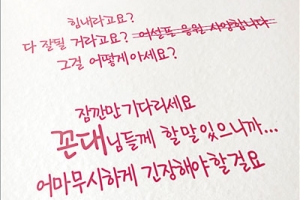 힘내라고요?
다 잘될 거라고요? 어설픈 응원 사양합니다
그걸 어떻게 아세요?
잠깐만 기다리세요
꼰대님들께 할 말 있으니까...
어마무시하게 긴장해야 할 걸요